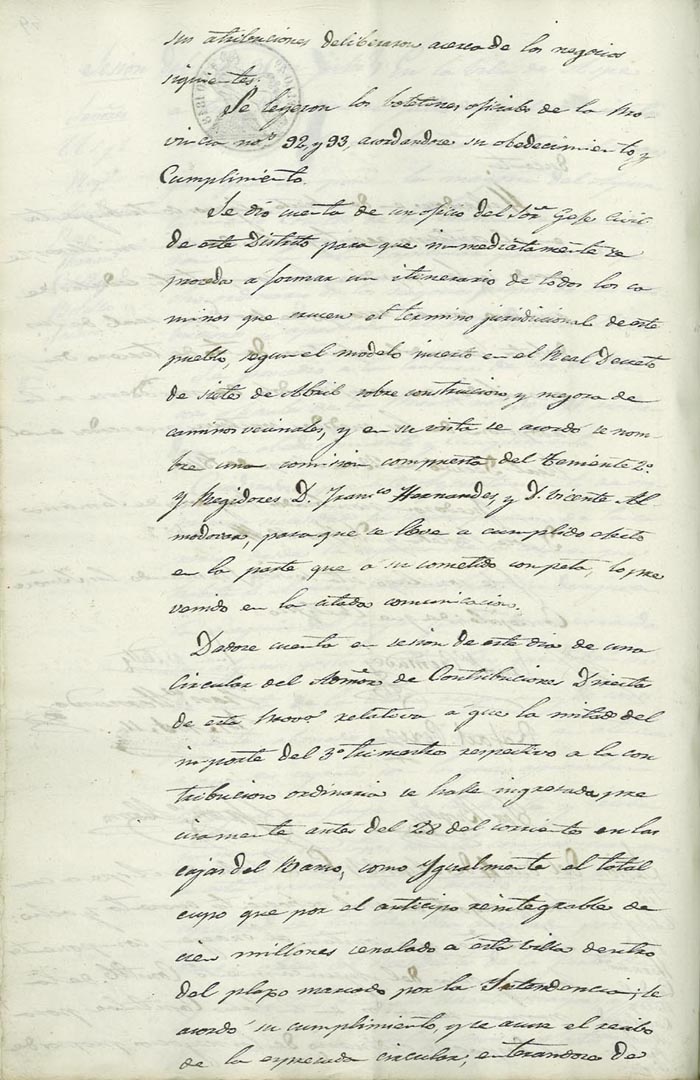 sus atribuciones deliberaron acerca de los negocios
siguientes.
Se leyeron los boletines oficiales de la Pro
vincia nos. 92, y 93, acordandose su obedecimiento, y
Cumplimiento.
Se dió cuenta de un oficio del Sor. Gefe Civil
de este Distrito para que inmediatamente se
proceda a formar un itinerario de todos los ca
minos que crucen el termino jurisdiccional de este
pueblo, segun el modelo inserto en el Real Decreto
de siete de Abril sobre construccion, y mejora de
caminos vecinales, y en su vista se acordo se nom-
bre una comision compuesta del Teniente 2º
y Regidores D. Franco. Hernandes, y D. Vicente Al
modovar, para que se lleve a cumplido efecto
en la parte que a su cometido competa, lo pre
venido en la citada comunicacion.
Dadose cuenta en sesion de este dia de una
Circular del Admor. de Contribuciones Directas
de esta Prova. relativa a que la mitad del
importe del 3º trimestre respectivo a la con
tribucion ordinaria se halle ingresada pre
cisamente antes del 28 del corriente en las
cajas del Ramo, como Ygualmente el total
cupo que por el anticipo reintegrable de
cien millones señalado a esta villa dentro
del plazo marcado por la Intendencia; se
acordó su cumplimiento, y se acuse el recibo
de la espresada circular, enterandose de